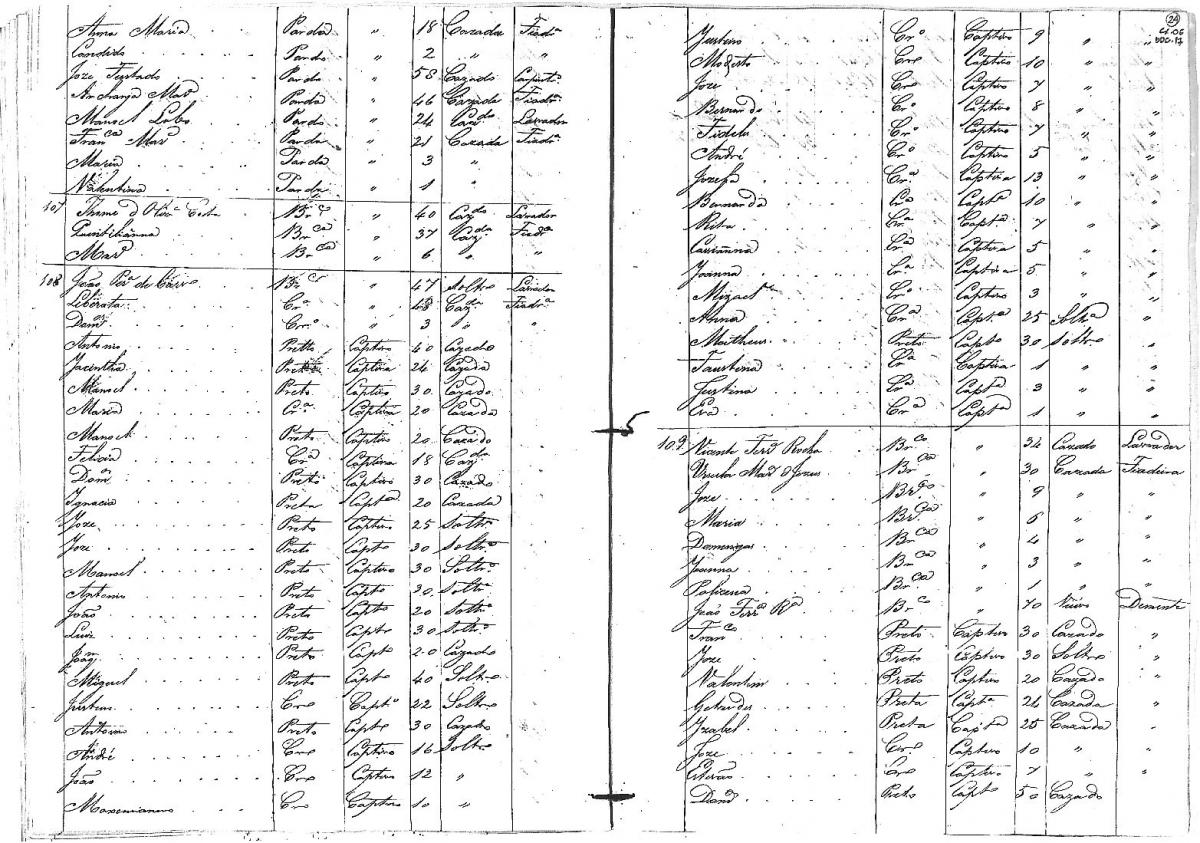 Anna Maria Parda " 18 Cazada Fiadrª
Candido Pardo " 2 " "
Joze Furtado Pardo " 58 Cazado Carpintº
Archanja Marª Parda " 46 Cazada Fiadrª
Manoel Lobo Pardo " 24 Cazdo Lavrador
Francª Marª Parda " 21 Cazada Fiadrª
Maria Parda " 3 "
Valentina Parda " 1 "
107 Thome d Olivrª Costa Brco " 40 Cazdo Lavrador
Quintilianna Brca " 37 Cazda Fiadrª
Marª Brca " 6 " "
108 João Prª de Brco " 47 Soltrº Lavrador
Liberata Crª " 48 Cazda Fiadrª
Domos Crº " 3 " "
Antonio Pretto Captivo 40 Cazado
Jacintha Preta Captiva 24 Cazada
Manoel Preto Captivo 30 Cazado
Maria Crª Captiva 20 Cazada
Manoel Preto Captivo 20 Cazado
Felicia Crª Captiva 18 Cazda
Domos Preto Captivo 30 Cazado
Ignacia Preta Captª 20 Cazada
Joze Preto Captivo 25 Soltrº
Joze Preto Captº 30 Soltrº
Manoel Preto Captº 30 Soltrº
Antonio Preto Captº 30 Soltrº
João Preto Captº 20 Soltrº
Luis Preto Captº 30 Soltrº
Joaqm Preto Captº 20 Cazado
Miguel Preto Captº 40 Soltro
Justino Cro Captº 22 Soltro
Antonio Preto Captº 30 Cazado
André Cro Captivo 16 Soltro
João Cro Captivo 12 "
Maxemianno Cro Captivo 10 "
5
24
CX.06
DOC.17
Justino Crº Captivo 9 " "
Modesto Cro Captivo 10 " "
Joze Cro Captivo 7 " "
Bernardo Crº Captivo 8 " "
Fidelis Crº Captivo 7 " "
André Crº Captivo 5 " "
Jozefa Crª Captiva 13 " "
Bernarda Crª Captª 10 " "
Rita Crª Captª 7 " "
Crª Captiva 5 " "
Joanna Crª Captiva 5 " "
Crº Captivo 3 " "
Anna Crª Captª 25 Soltrª "
Matheus Preto Captº 30 Soltro "
Faustina Crª Captiva 1 " "
Justina Crª Captª 3 " "
Eva Crª Captª 1 " "
109 Vicente Ferrª Rocha Brco " 34 Cazado Lavrador
Ursula Marª d Jezus Brca " 30 Cazada Fiadeira
Joze Brco " 9 " "
Maria Brca " 6 " "
Domingas Brca " 4 " "
Joanna Brca " 3 " "
Policena Brca " 1 " "
João Ferrª Rª Brco " 70 Viuvo Demente
Franco Preto Captivo 30 Cazado "
Joze Preto Captivo 30 Soltro "
Valentim Preto Captivo 20 Cazado "
Getrudes Preta Captª 24 Cazada "
Izabel Preta Captª 25 Cazada "
Joze Cro Captivo 10 " "
Estevão Cro Captivo 7 " "
Preto Captº 50 Cazado